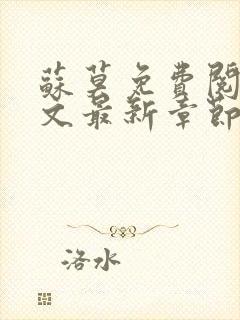 蘇莫免費閱
文最新章節
洛水